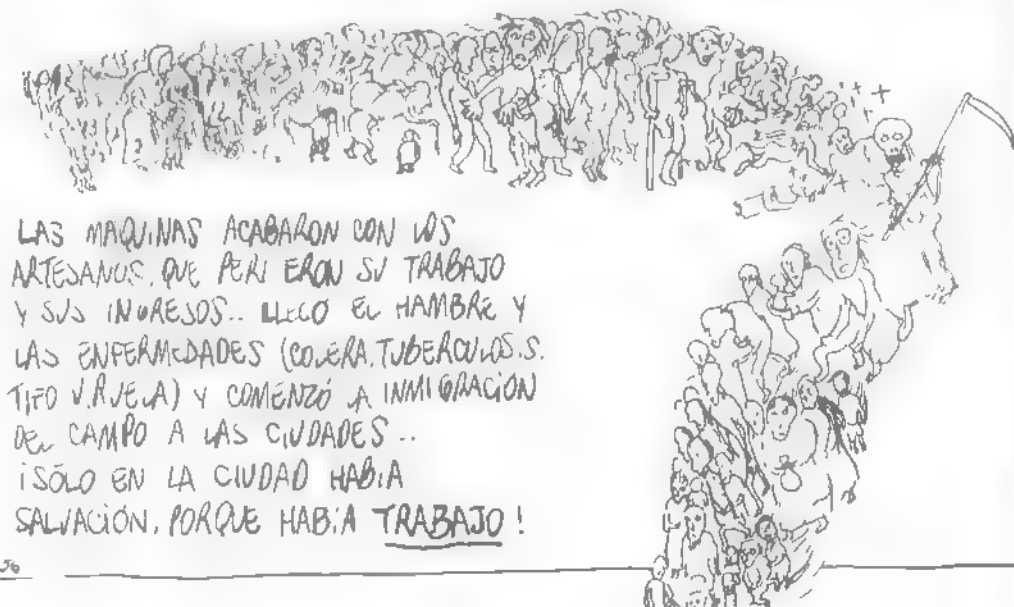 LAS MAQUINAS ACABARON CON LOS
ARTESANOS, QUE PERDIERON SU TRABAJO
Y SUS INGRESOS.. LLEGÓ EL HAMBRE Y
LAS ENFERMEDADES (COLERA, TUBERCULOSIS,
TIFO VIRUELA) Y COMENZÓ LA INMIGRACIÓN
DEL CAMPO A LAS CIUDADES..
¡SÓLO EN LA CIUDAD HABÍA
SALVACIÓN, PORQUE HABÍA TRABAJO!
56